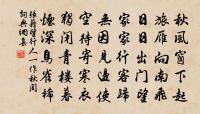 秋風窗下起
旅雁向南飛
日日出門望
家家行客歸
無因見邊使
空待寄寒衣
獨閉青樓暮
煙深鳥雀稀
張籍望行人一作秋閨
詞典網集